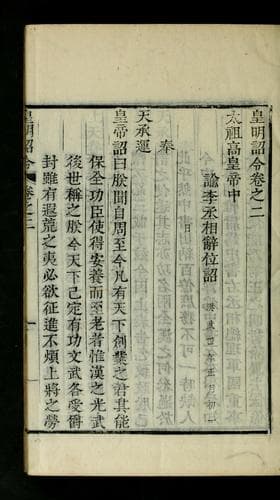 皇明詔令卷之二
太祖高皇帝中
諭李丞相辭位詔
洪武四年正月初二
日
奉
天承運
皇帝詔曰朕聞自周至今凡有天下創業之君其能
保全功臣使得安養而至老者惟漢之光武
後世稱之朕今天下已定有功文武各受爵
封雖有遐荒之夷必欲征進不煩上將之勞
皇明詔令
卷之二